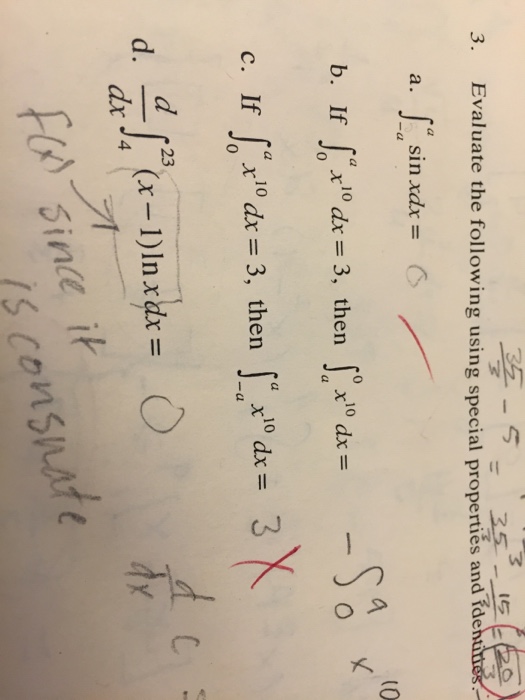 35/3 - 5 = 35/3 - 15/3 = 20/3
3. Evaluate the following using special properties and identities.
a. ∫_{-a}^{a} sin xdx = 0
b. If ∫_0^a x^{10} dx = 3, then ∫_a^0 x^{10} dx = -∫_0^a x^{10}
c. If ∫_0^a x^{10} dx = 3, then ∫_{-a}^{a} x^{10} dx = 3
d. d/dx ∫_4^{23} (x - 1) ln xdx = 0 d/dx c
f(x) since it
is consnate